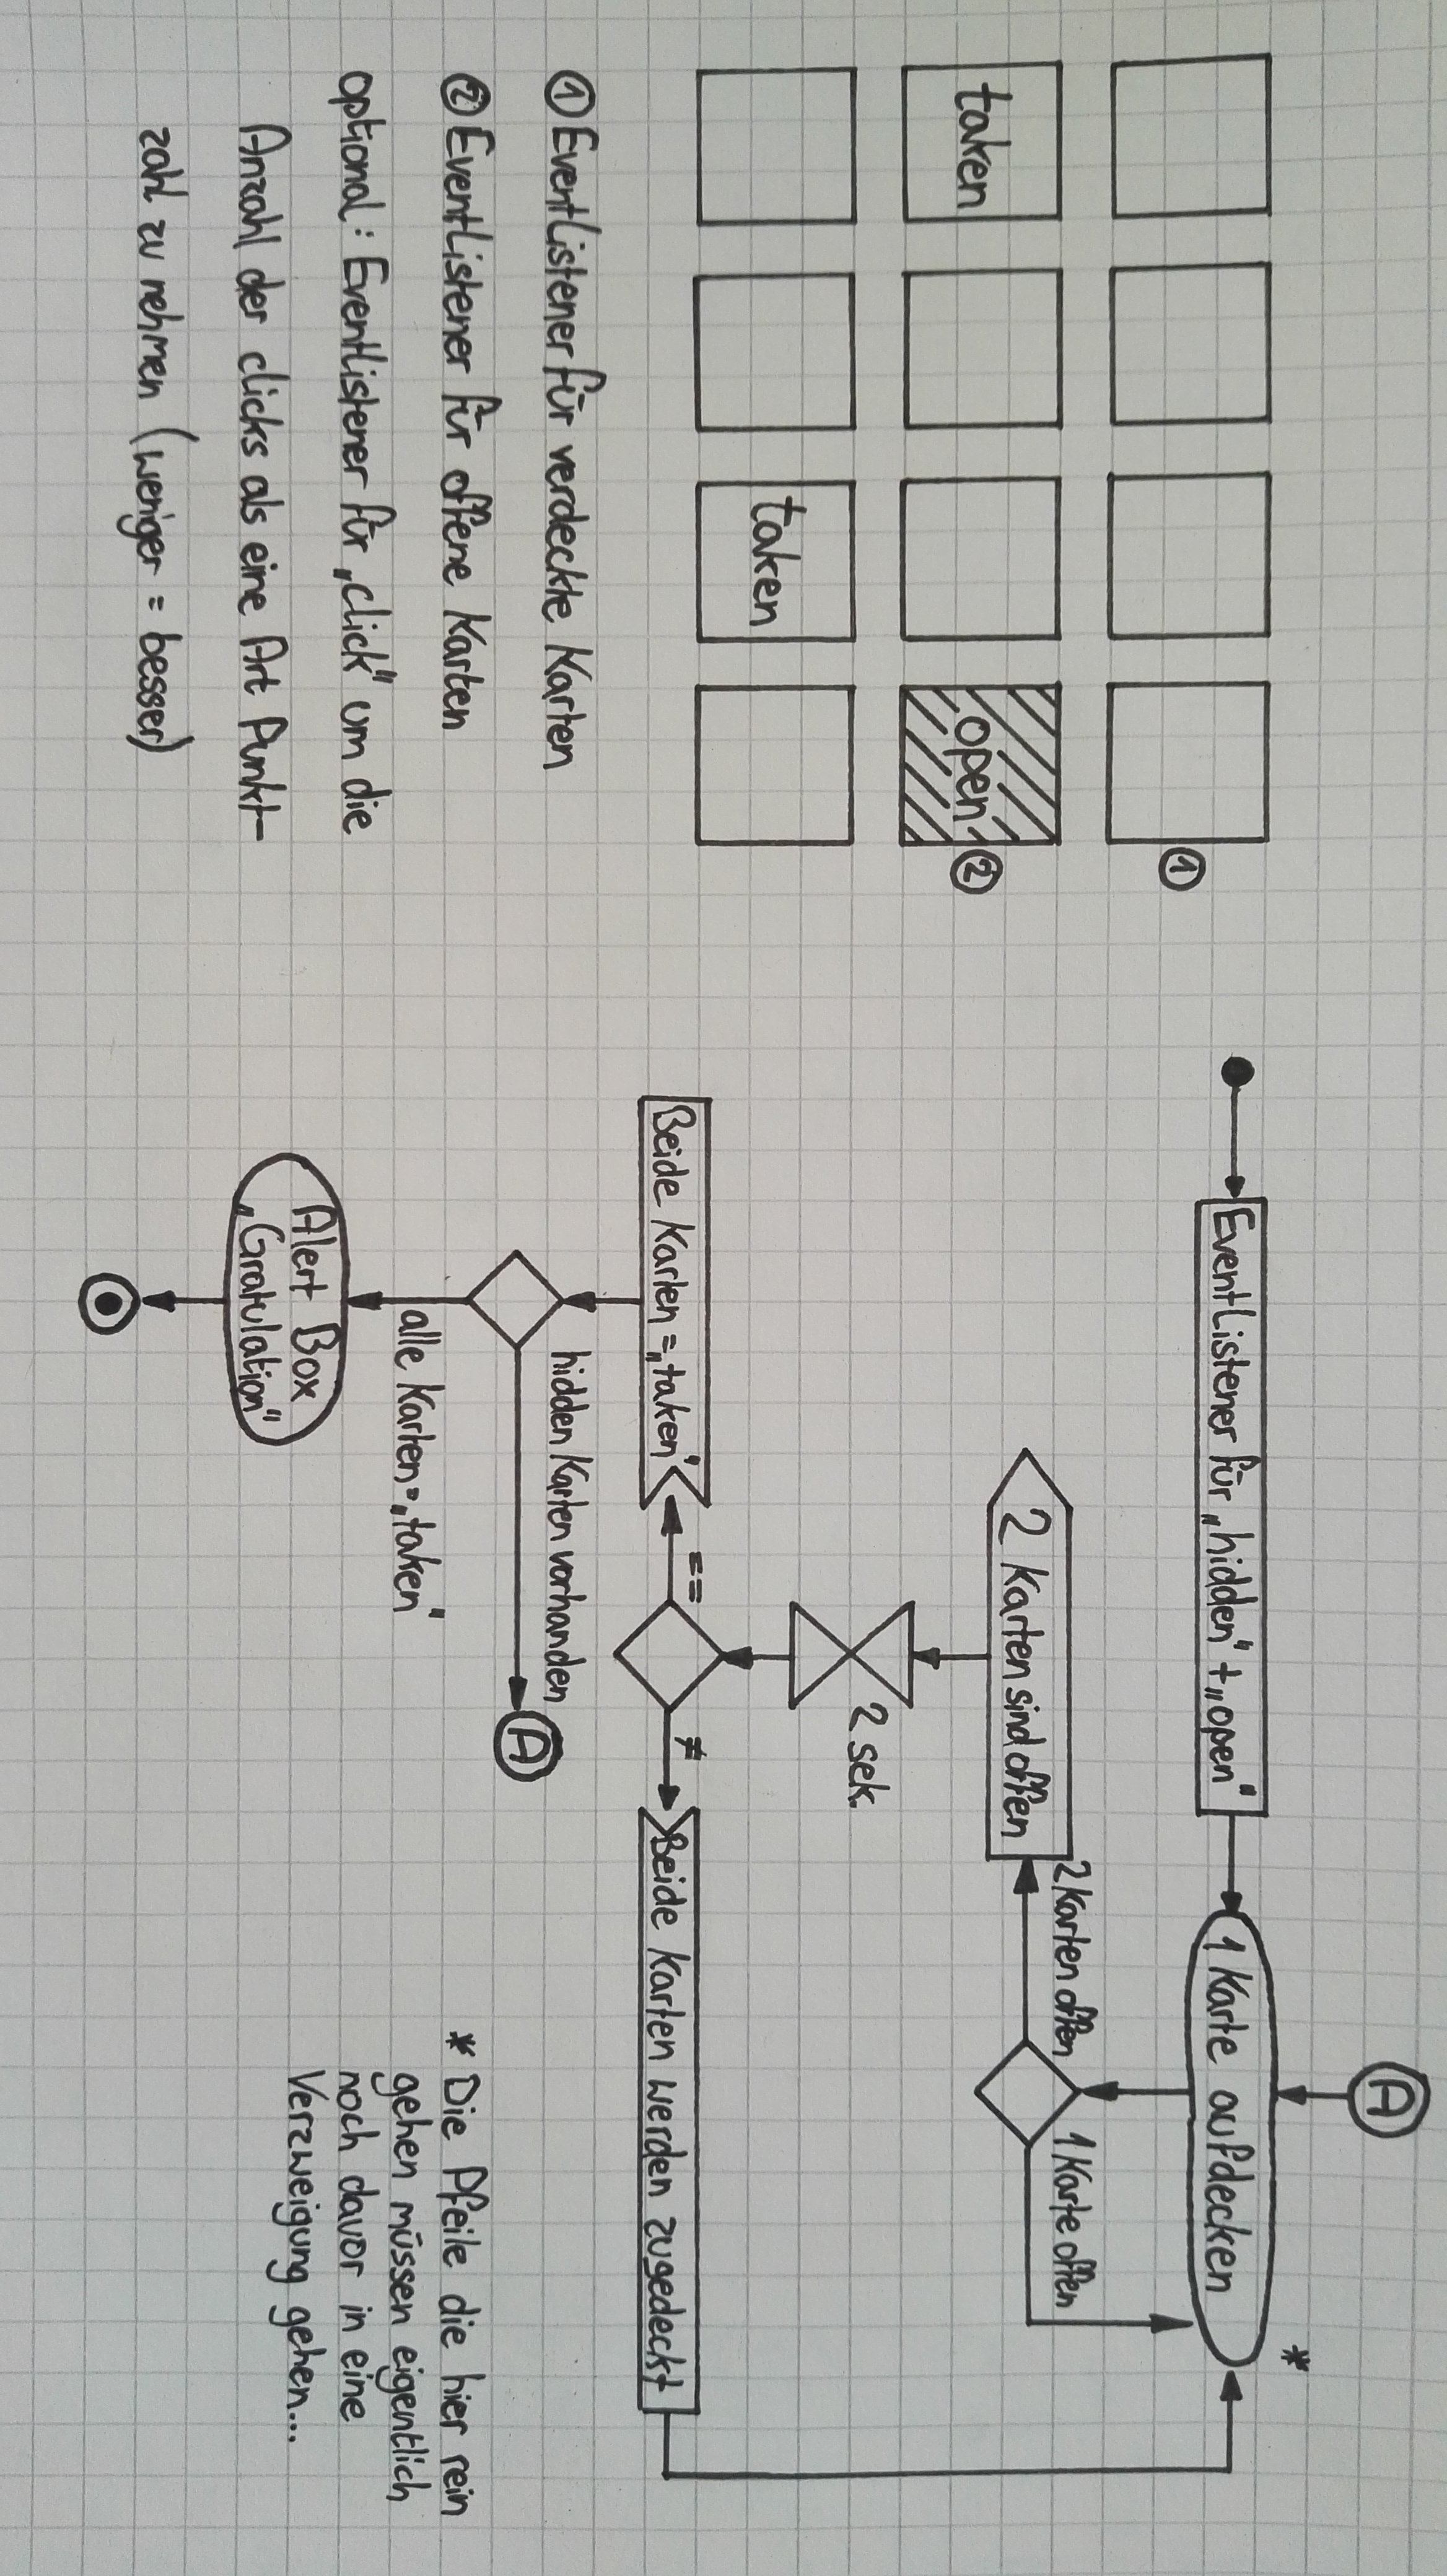 ①
taken
open
②
taken
① EventListener für verdeckte Karten
② EventListener für offene Karten
optional: EventListener für „click“ um die
Anzahl der clicks als eine Art Punkt-
zahl zu nehmen (weniger = besser)
A
*
EventListener für „hidden“ + „open“
1 Karte aufdecken
2 Karten offen
1 Karte offen
2 Karten sind offen
2 sek.
Beide Karten = „taken“
==
≠
Beide Karten werden zugedeckt
hidden Karten vorhanden
A
alle Karten = „taken“
Alert Box
„Gratulation“
* Die Pfeile die hier rein
gehen müssen eigentlich
noch davor in eine
Verzweigung gehen...